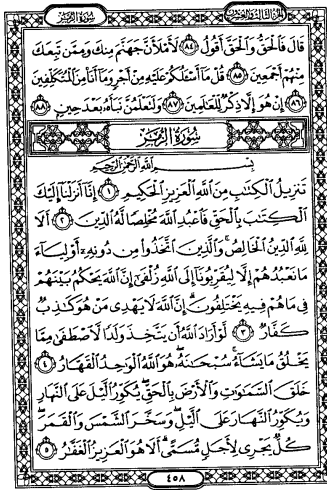 الجزء الثالث والعشرون سورة الزمر
قَالَ فَالْحَقُّ وَالْحَقَّ أَقُولُ ۝٨٤ لَأَمْلَأَنَّ جَهَنَّمَ مِنكَ وَمِمَّن تَبِعَكَ
مِنْهُمْ أَجْمَعِينَ ۝٨٥ قُلْ مَا أَسْأَلُكُمْ عَلَيْهِ مِنْ أَجْرٍ وَمَا أَنَا مِنَ الْمُتَكَلِّفِينَ
۝٨٦ إِنْ هُوَ إِلَّا ذِكْرٌ لِّلْعَالَمِينَ ۝٨٧ وَلَتَعْلَمُنَّ نَبَأَهُ بَعْدَ حِينٍ ۝٨٨
سُورَةُ الزُّمَرِ
بِسْمِ اللَّهِ الرَّحْمَٰنِ الرَّحِيمِ
تَنزِيلُ الْكِتَابِ مِنَ اللَّهِ الْعَزِيزِ الْحَكِيمِ ۝١ إِنَّا أَنزَلْنَا إِلَيْكَ
الْكِتَابَ بِالْحَقِّ فَاعْبُدِ اللَّهَ مُخْلِصًا لَّهُ الدِّينَ ۝٢ أَلَا
لِلَّهِ الدِّينُ الْخَالِصُ وَالَّذِينَ اتَّخَذُوا مِن دُونِهِ أَوْلِيَاءَ
مَا نَعْبُدُهُمْ إِلَّا لِيُقَرِّبُونَا إِلَى اللَّهِ زُلْفَىٰ إِنَّ اللَّهَ يَحْكُمُ بَيْنَهُمْ
فِي مَا هُمْ فِيهِ يَخْتَلِفُونَ إِنَّ اللَّهَ لَا يَهْدِي مَنْ هُوَ كَاذِبٌ
كَفَّارٌ ۝٣ لَّوْ أَرَادَ اللَّهُ أَن يَتَّخِذَ وَلَدًا لَّاصْطَفَىٰ مِمَّا
يَخْلُقُ مَا يَشَاءُ سُبْحَانَهُ هُوَ اللَّهُ الْوَاحِدُ الْقَهَّارُ ۝٤
خَلَقَ السَّمَاوَاتِ وَالْأَرْضَ بِالْحَقِّ يُكَوِّرُ اللَّيْلَ عَلَى النَّهَارِ
وَيُكَوِّرُ النَّهَارَ عَلَى اللَّيْلِ وَسَخَّرَ الشَّمْسَ وَالْقَمَرَ
كُلٌّ يَجْرِي لِأَجَلٍ مُّسَمًّى أَلَا هُوَ الْعَزِيزُ الْغَفَّارُ ۝٥
٤٥٨